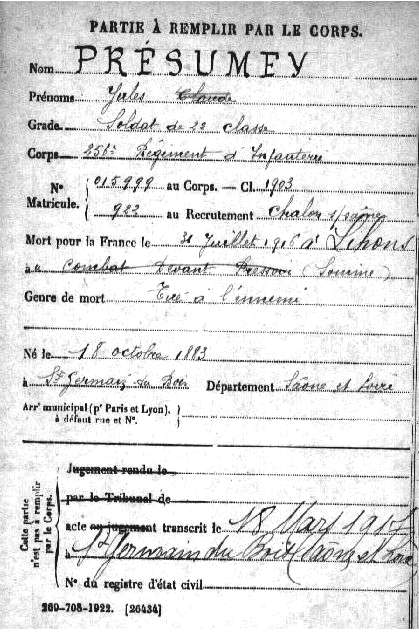 PARTIE À REMPLIR PAR LE CORPS.
Nom PRÉSUMEY
Prénoms Jules Claude
Grade Soldat de 2e classe
Corps 256e Régiment d'Infanterie
Nº Matricule. { 015999 au Corps. — Cl. 1903
922 au Recrutement Chalon s/saône
Mort pour la France le 31 Juillet 1916 à Lihons
à combat devant (Somme)
Genre de mort Tué à l'ennemi
Né le 18 octobre 1883
à St Germain du Bois Département Saône et Loire
Arrt municipal (pr Paris et Lyon), à défaut rue et Nº. }
Cette partie n'est pas à remplir par le Corps. {
Jugement rendu le
par le Tribunal de
acte ou jugement transcrit le 18 Mars 1917
à St Germain du Bois (Saône et Loire)
Nº du registre d'état civil
269-708-1922. [26434]